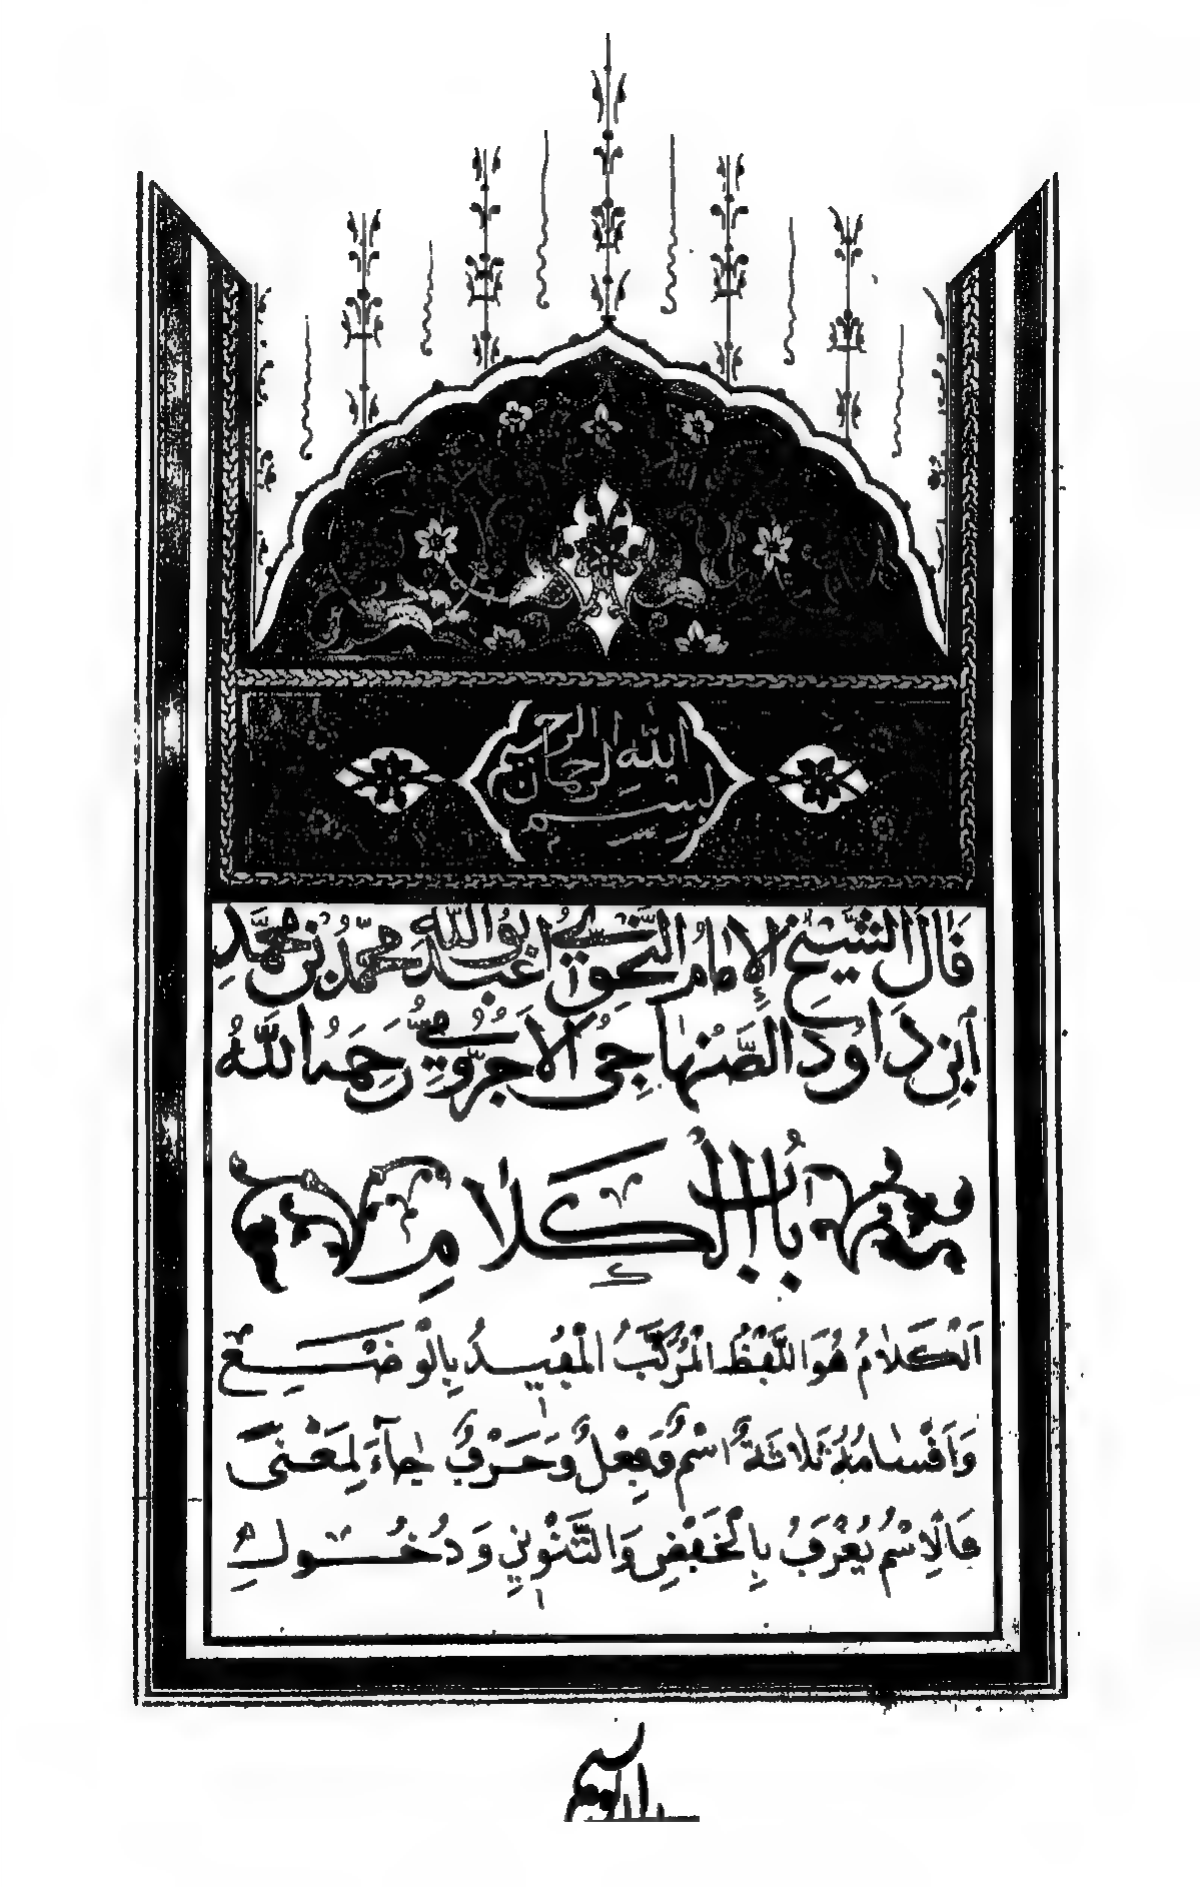 بسم الله الرحمان الرحيم
قَالَ الشَّيْخُ الإِمَامُ النَّحْوِيُّ أَبُو عَبْدِ اللَّه مُحَمَّدُ بْنُ مُحَمَّدِ
ابْنِ دَاوُدَ الصَّنْهَاجِيُّ الآجُرُّومِيُّ رَحِمَهُ اللَّهُ
بَابُ الْكَلَامِ
اَلْكَلَامُ هُوَ اللَّفْظُ الْمُرَكَّبُ الْمُفِيدُ بِالْوَضْعِ
وَأَقْسَامُهُ ثَلَاثَةٌ اسْمٌ وَفِعْلٌ وَحَرْفٌ جَآءَ لِمَعْنًى
فَالِاسْمُ يُعْرَفُ بِالْخَفْضِ وَالتَّنْوِينِ وَدُخُولِ